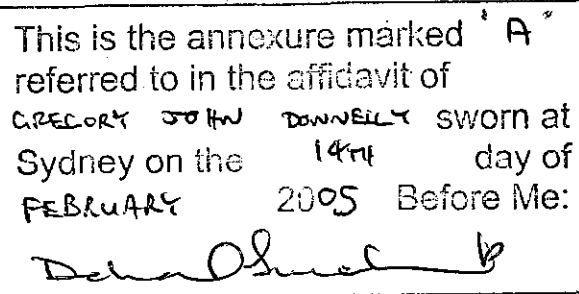 This is the annexure marked "A"
referred to in the affidavit of
GREGORY JOHN DONNELLY sworn at
Sydney on the 14TH day of
FEBRUARY 2005 Before Me: